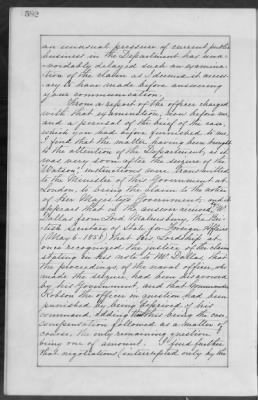 582
an unusual pressure of current public
business in the Department has una-
voidably delayed such an examina-
tion of the claim as I deemed it necess-
ary to have made before answering
your communication.
From a report of the officer charged
with that examination, now before me,
and a perusal of the brief of the case,
which you had before furnished to me
I find that the matter having been brought
to the attention of the Department, as it
was very soon after the seizure of the
"Watson", instructions were transmitted
to the Minister of this Government at
London, to bring the claim to the notice
of Her Majesty's Government; and it
appears that in the answer received Mr
Dallas from Lord Malmesbury, the Bri-
tish Secretary of State for Foreign Affairs
(May 6. 1858) That His Lordship at
once recognized the justice of the claim
stating in his note to Mr Dallas, that
the proceedings of the naval officer, who
made the seizure had been disavowed
by his Government, and that Commander
Robson the officer in question had been
punished by being deprived of his
command, adding this being the case
compensation followed as a matter of
course, the only remaining question
being one of amount. I find further
that negotiations (interrupted only by the